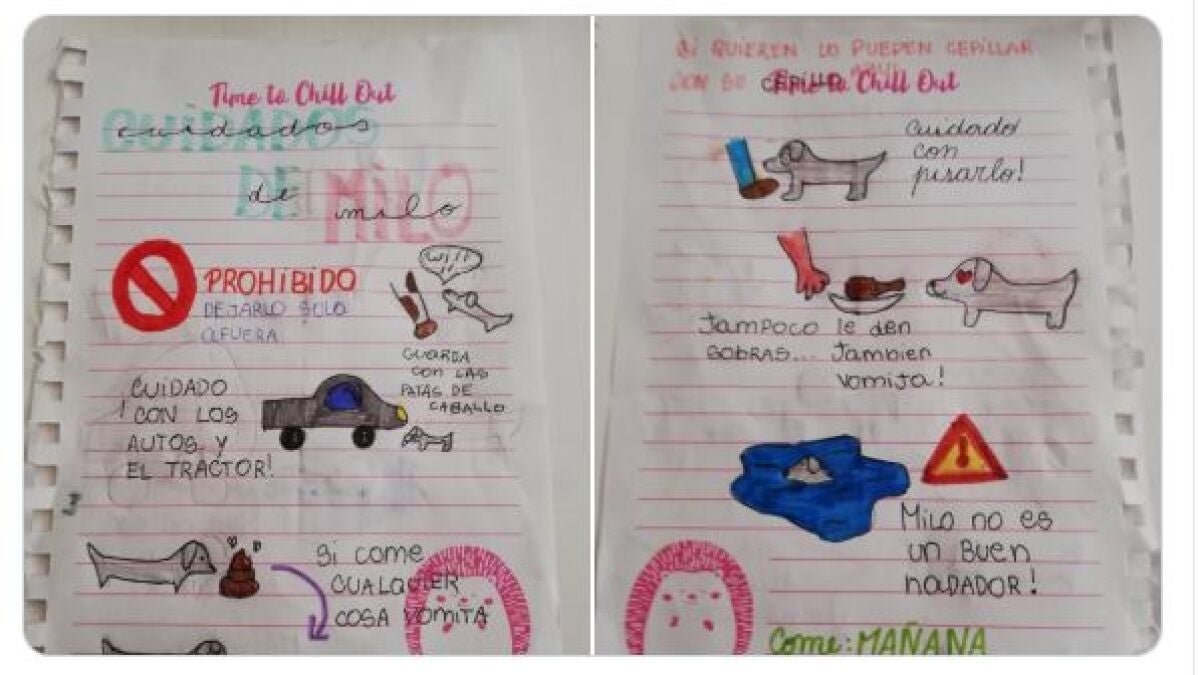 Time to Chill Out
CUIDADOS
cuidados
DE MILO
de milo
PROHIBIDO
DEJARLO SOLO
AFUERA
GUARDA
CON LAS
PATAS DE
CABALLO
¡CUIDADO
CON LOS
AUTOS Y
EL TRACTOR!
Si come
CUALQUIER
COSA VOMITA
Si QUIEREN LO PUEDEN CEPILLAR
CON SU CEPILLO AZUL
Time to Chill Out
Cuidado
con
pisarlo!
Tampoco le den
SOBRAS... Tambien
vomita!
MiLO no es
un Buen
naDADOR!
Come: MAÑANA